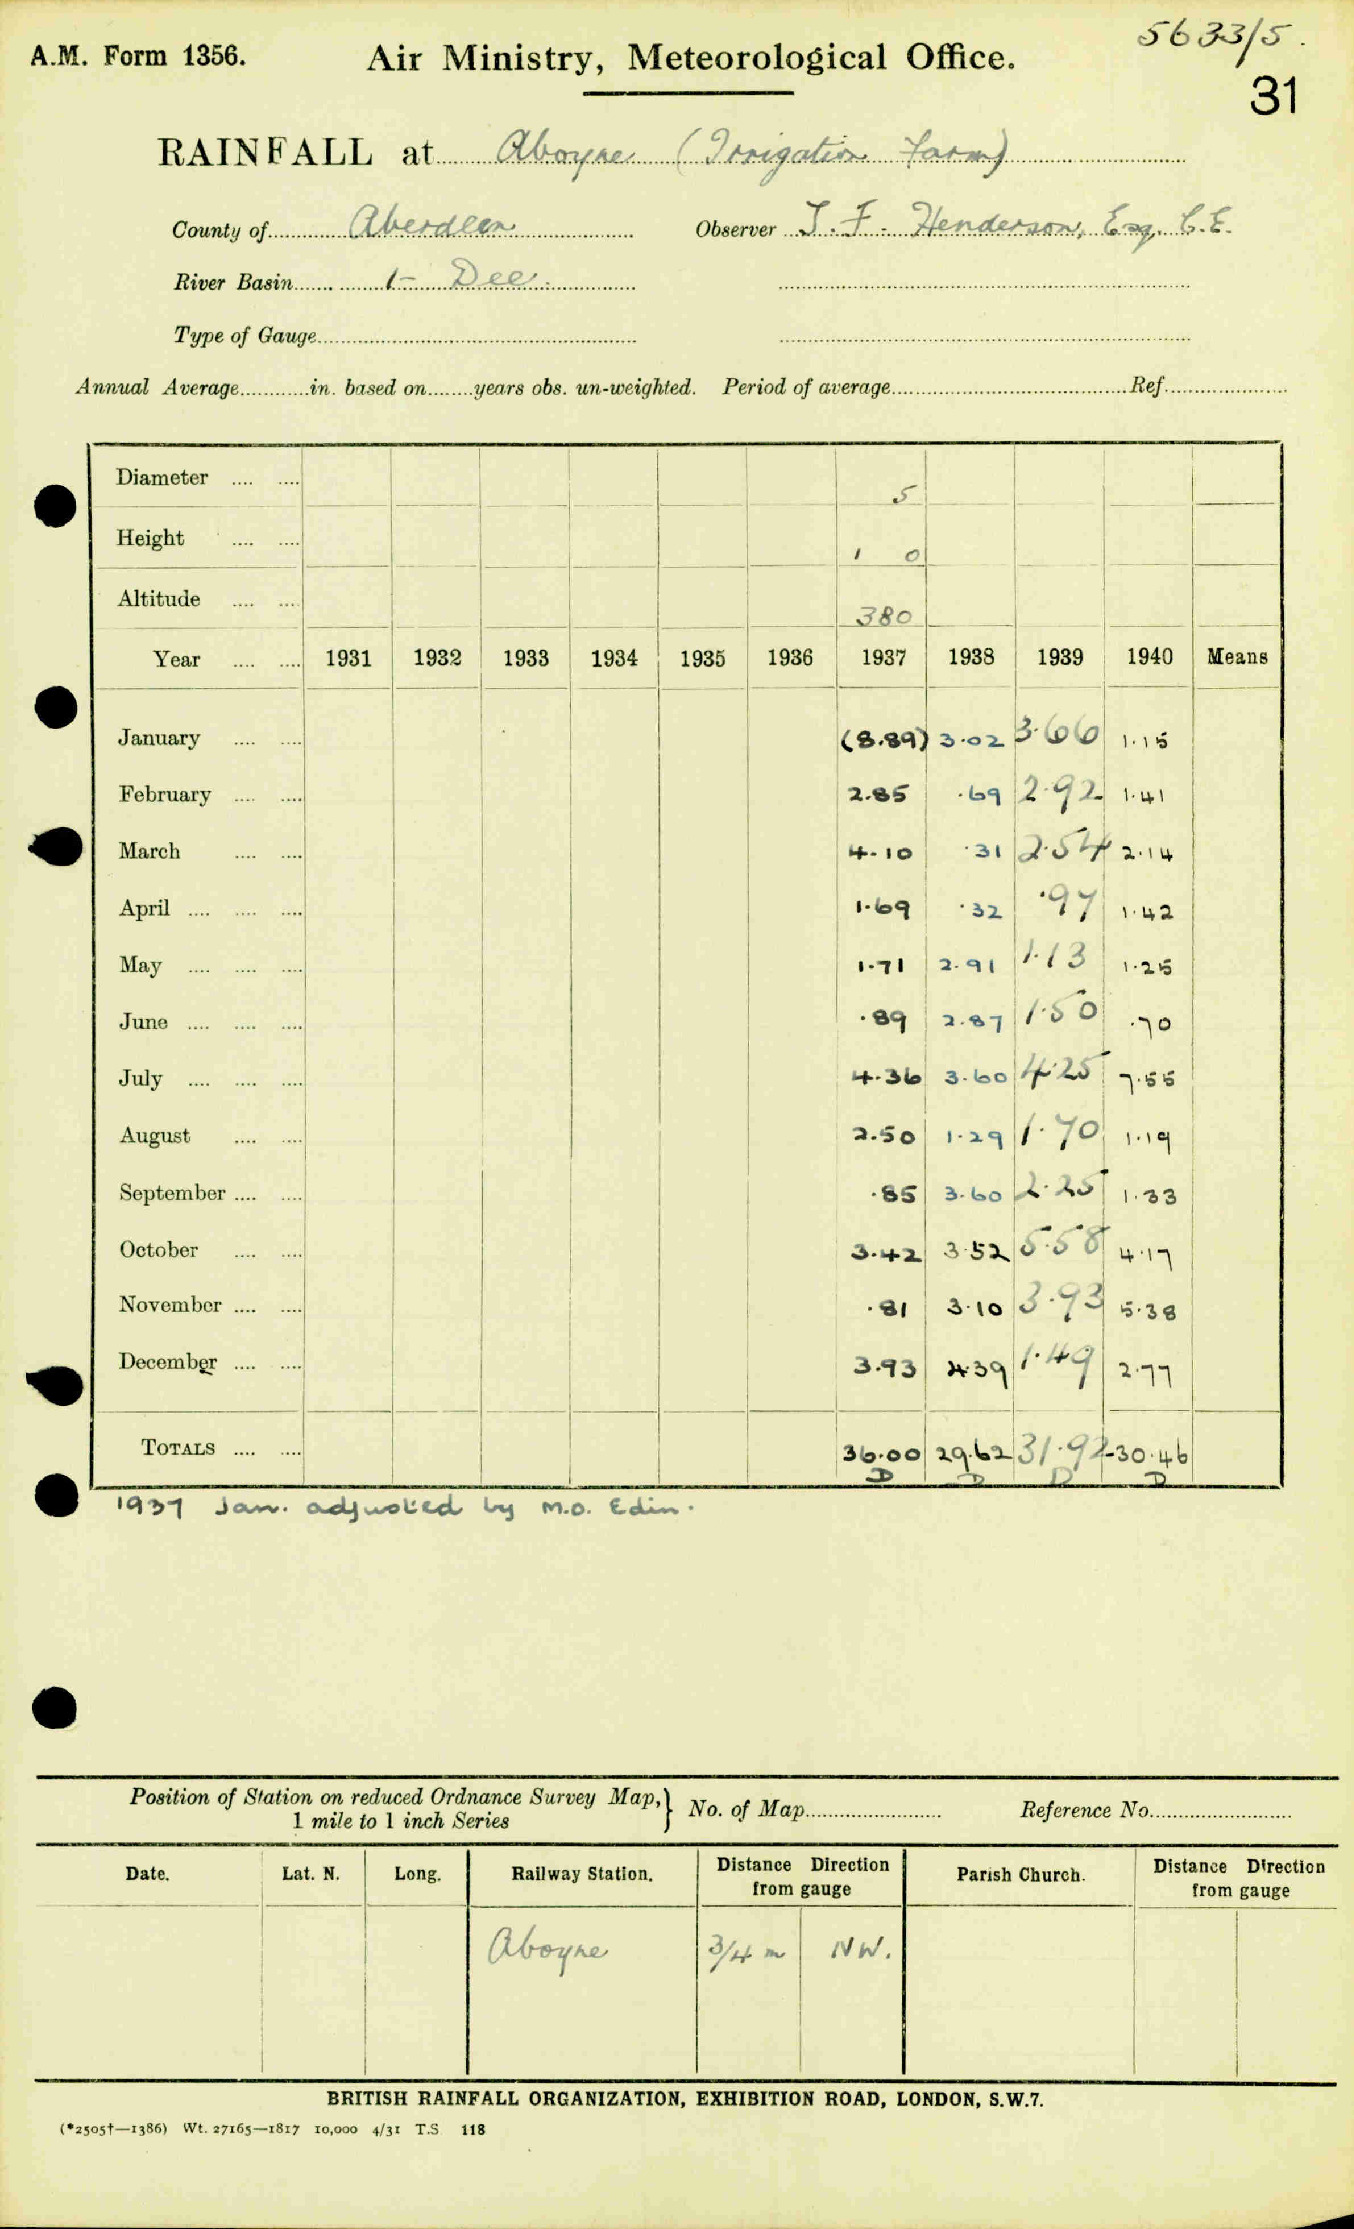 5633/5.
A.M. Form 1356. Air Ministry, Meteorological Office.
31
RAINFALL at Aboyne (Irrigation Farm)
County of Aberdeen Observer J. F. Henderson, Esq. C.E.
River Basin 1- Dee.
Type of Gauge
Annual Average in. based on years obs. un-weighted. Period of average Ref.
Diameter .... .... 5
Height .... .... 1 0
Altitude .... .... 380
Year .... .... 1931 1932 1933 1934 1935 1936 1937 1938 1939 1940 Means
January .... .... (8.89) 3.02 3.66 1.15
February .... .... 2.85 .69 2.92 1.41
March .... .... 4.10 .31 2.54 2.14
April .... .... .... 1.69 .32 .97 1.42
May .... .... .... 1.71 2.91 1.13 1.25
June .... .... .... .89 2.87 1.50 .70
July .... .... .... 4.36 3.60 4.25 7.55
August .... .... 2.50 1.29 1.70 1.19
September .... .... .85 3.60 2.25 1.33
October .... .... 3.42 3.52 5.58 4.17
November .... .... .81 3.10 3.93 5.38
December .... .... 3.93 4.39 1.49 2.77
TOTALS .... .... 36.00 29.62 31.92 30.46
D D D D
1937 Jan. adjusted by M.O. Edin.
Position of Station on reduced Ordnance Survey Map,} No. of Map Reference No.
1 mile to 1 inch Series
Date. Lat. N. Long. Railway Station. Distance Direction from gauge Parish Church. Distance Direction from gauge
Aboyne 3/4 m NW.
BRITISH RAINFALL ORGANIZATION, EXHIBITION ROAD, LONDON, S.W.7.
(*2505†—1386) Wt. 27165—1817 10,000 4/31 T.S 118